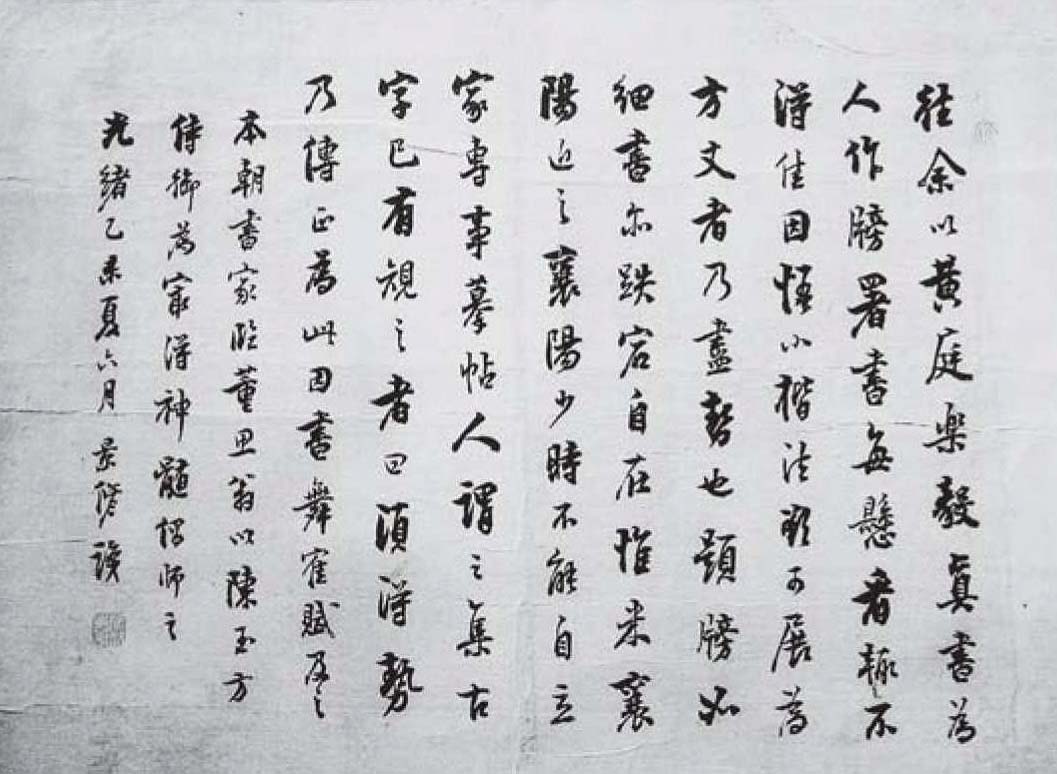 往余以黃庭樂毅真書為
人作牓署書每懸看輒不
得佳因悟小楷法欲可展為
方丈者乃盡勢也題牓如
細書亦跌宕自在惟米襄
陽近之襄陽少時不能自立
家專事摹帖人謂之集古
字已有規之者曰須得勢
乃傳正為此因書舞鶴賦及之
本朝書家臨董思翁以陳玉方
侍御為最得神髓偶師之
光緒乙未夏六月 景識